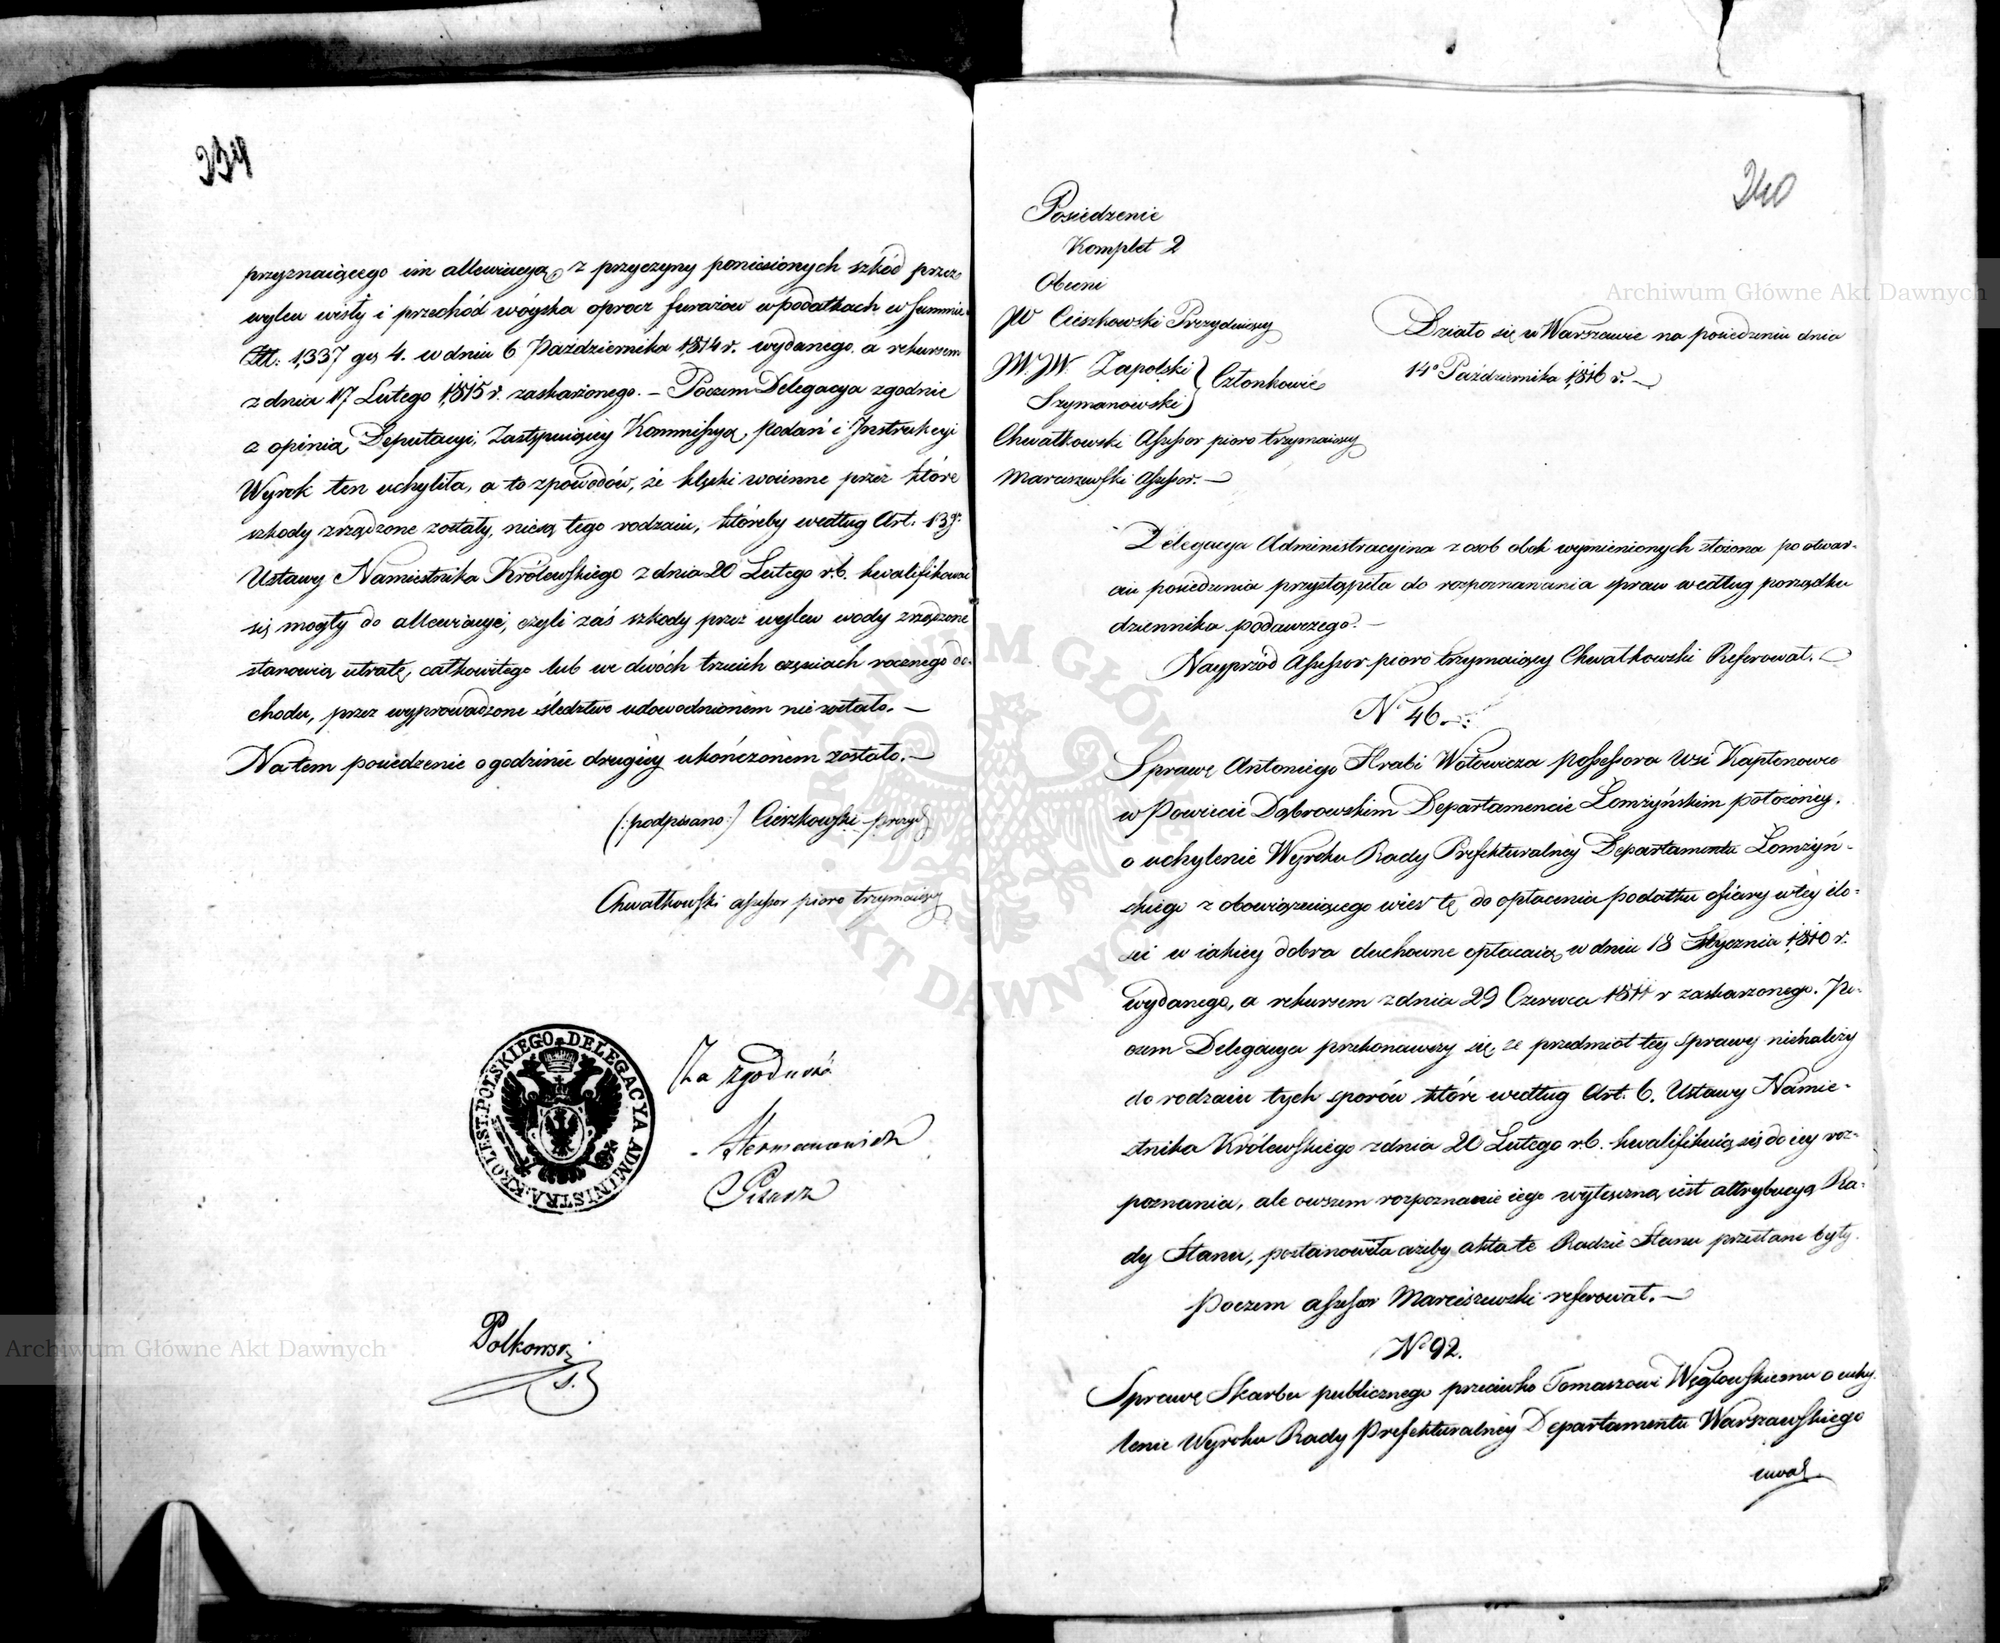 239
przyznaiącego im allewiacyą z przyczyny poniesionych szkód przez
wylew wisły i przechód wóyska oprocz furażow w podatkach w summie
Zł: 1,337 gr 4. w dniu 6 Października 1814 r. wydanego a rekursem
z dnia 17 Lutego 1815 r. zaskarżonego. – Poczem Delegacya zgodnie
z opinią Deputacyi, Zastępuiącey Kommissyą, podań i Instrukcyi
Wyrok ten uchyliła, a to z powodów, że klęski woienne przez które
szkody zrządzone zostały, niesą tego rodzaiu, któreby według Art. 13go
Ustawy Namiestnika Królewskiego z dnia 20 Lutego r.b. kwalifikować
się mogły do allewiacyi, czyli zaś szkody przez wylew wody zrządzone
stanowią utratę, całkowitego lub we dwóch trzecich częściach rocznego do-
chodu, przez wyprowadzone śledztwo udowodnionem nie zostało. –
Na tem posiedzenie o godzinie drugiey ukończonem zostało. –
(:podpisano:) Cieszkowski prezyd
Chwatkowski assessor pioro trzymaiący
KROLEST: POLSKIEGO DELEGACYA ADMINISTRA:
Za zgodność
Hermanowicz
Pisarz
Polkowski
240
Posiedzenie
Komplet 2
Obecni
JW Cieszkowski Prezyduiący
JW. JW. Zapolski
Szymanowski } Członkowie
Chwatkowski Assessor pioro trzymaiący
Marciszewski Assessor. –
Działo się w Warszawie na posiedzeniu dnia
14o Października 1816 r. –
Delegacya Administracyina z osob obok wymienionych złożona po otwar-
ciu posiedzenia przystąpiła do rozpoznawania spraw według porządku
dziennika podawczego. –
Nayprzód Assessor pioro trzymaiący Chwatkowski Referował. –
No 46. –
Sprawę Antoniego Hrabi Wołowicza possessora Wsi Kaptonowce
w Powiecie Dąbrowskim Departamencie Łomżyńskim położoney,
o uchylenie Wyroku Rady Prefekturalney Departamentu Łomżyń-
skiego z obowiązuiącego wieś tę do opłacenia podatku ofiary w tey ilo-
ści w iakiey dobra duchowne opłacaią w dniu 18 Stycznia 1810 r.
wydanego, a rekursem z dnia 29 Czerwca 1811 r zaskarzonego. Po-
czem Delegacya przekonawszy się że przedmiot tey sprawy nienależy
do rodzaiu tych sporów które według Art. 6. Ustawy Namie-
stnika Królewskiego z dnia 20 Lutego r.b. kwalifikuią się do iey roz-
poznania, ale owszem rozpoznanie iego wyłączną iest attrybucyą Ra-
dy Stanu, postanowiła ażeby akta te Radzie Stanu przesłane były.
Poczem assessor Marciszewski referował. –
No 92.
Sprawę Skarbu publicznego przeciwko Tomaszowi Węgłowskiemu o uchy-
lenie Wyroku Rady Prefekturalney Departamentu Warszawskiego
Archiwum Główne Akt Dawnych
Archiwum Główne Akt Dawnych
ARCHIWUM GŁÓWNE AKT DAWNYCH